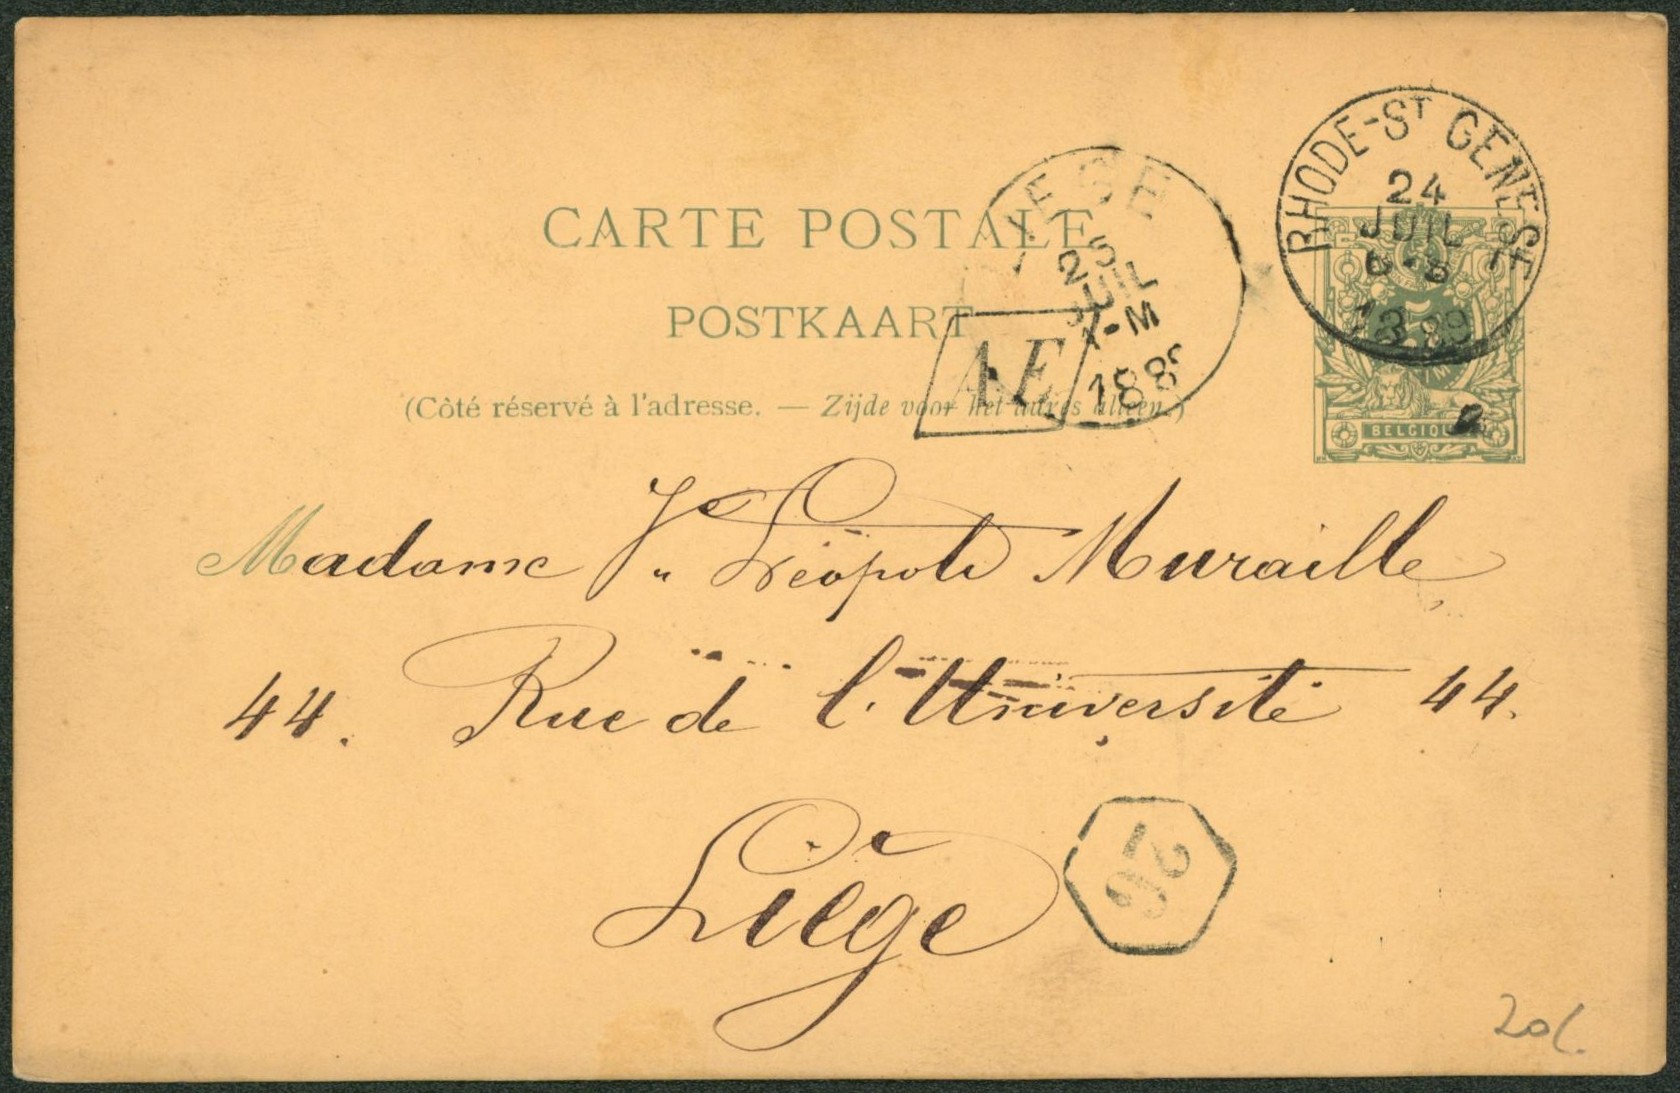 CARTE POSTALE
POSTKAART
(Côté réservé à l'adresse. — Zijde voor het adres alleen.)
RHODE-ST GENESE
24
JUIL
6-8
1889
LIEGE
25
JUIL
7-M
188
AE
5
BELGIQUE
Madame Léopold Muraille
44. Rue de l'Université 44.
Liège
26
20f.